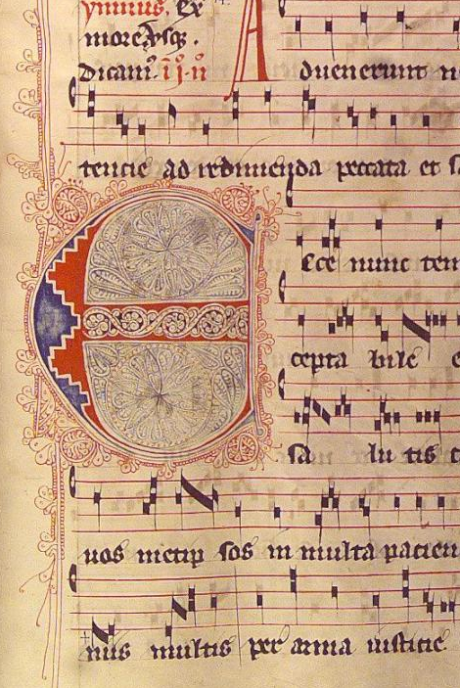 ymnus. ex
more
dicam̄.
A duenerunt n
tencie ad redimenda peccata et sa
E cce nunc tem
cepta bile
sa lu tis
uos metip sos in multa pacien
nus multis per arma iusticie.